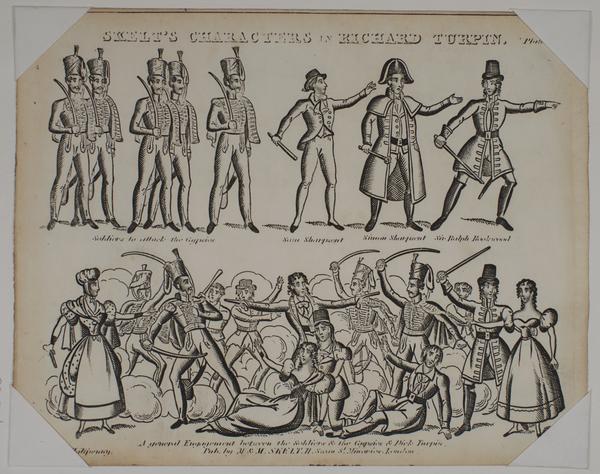 SKELT'S CHARACTERS IN RICHARD TURPIN.
Soldiers to attack the Gypsies
Sam Sharpent
Simon Sharpent
Sir Ralph Rookwood
A general Engagement between the Soldiers & the Gypsies & Dick Turpin
Pub. by M & M. SKELT, 11, Swan St. Minories, London